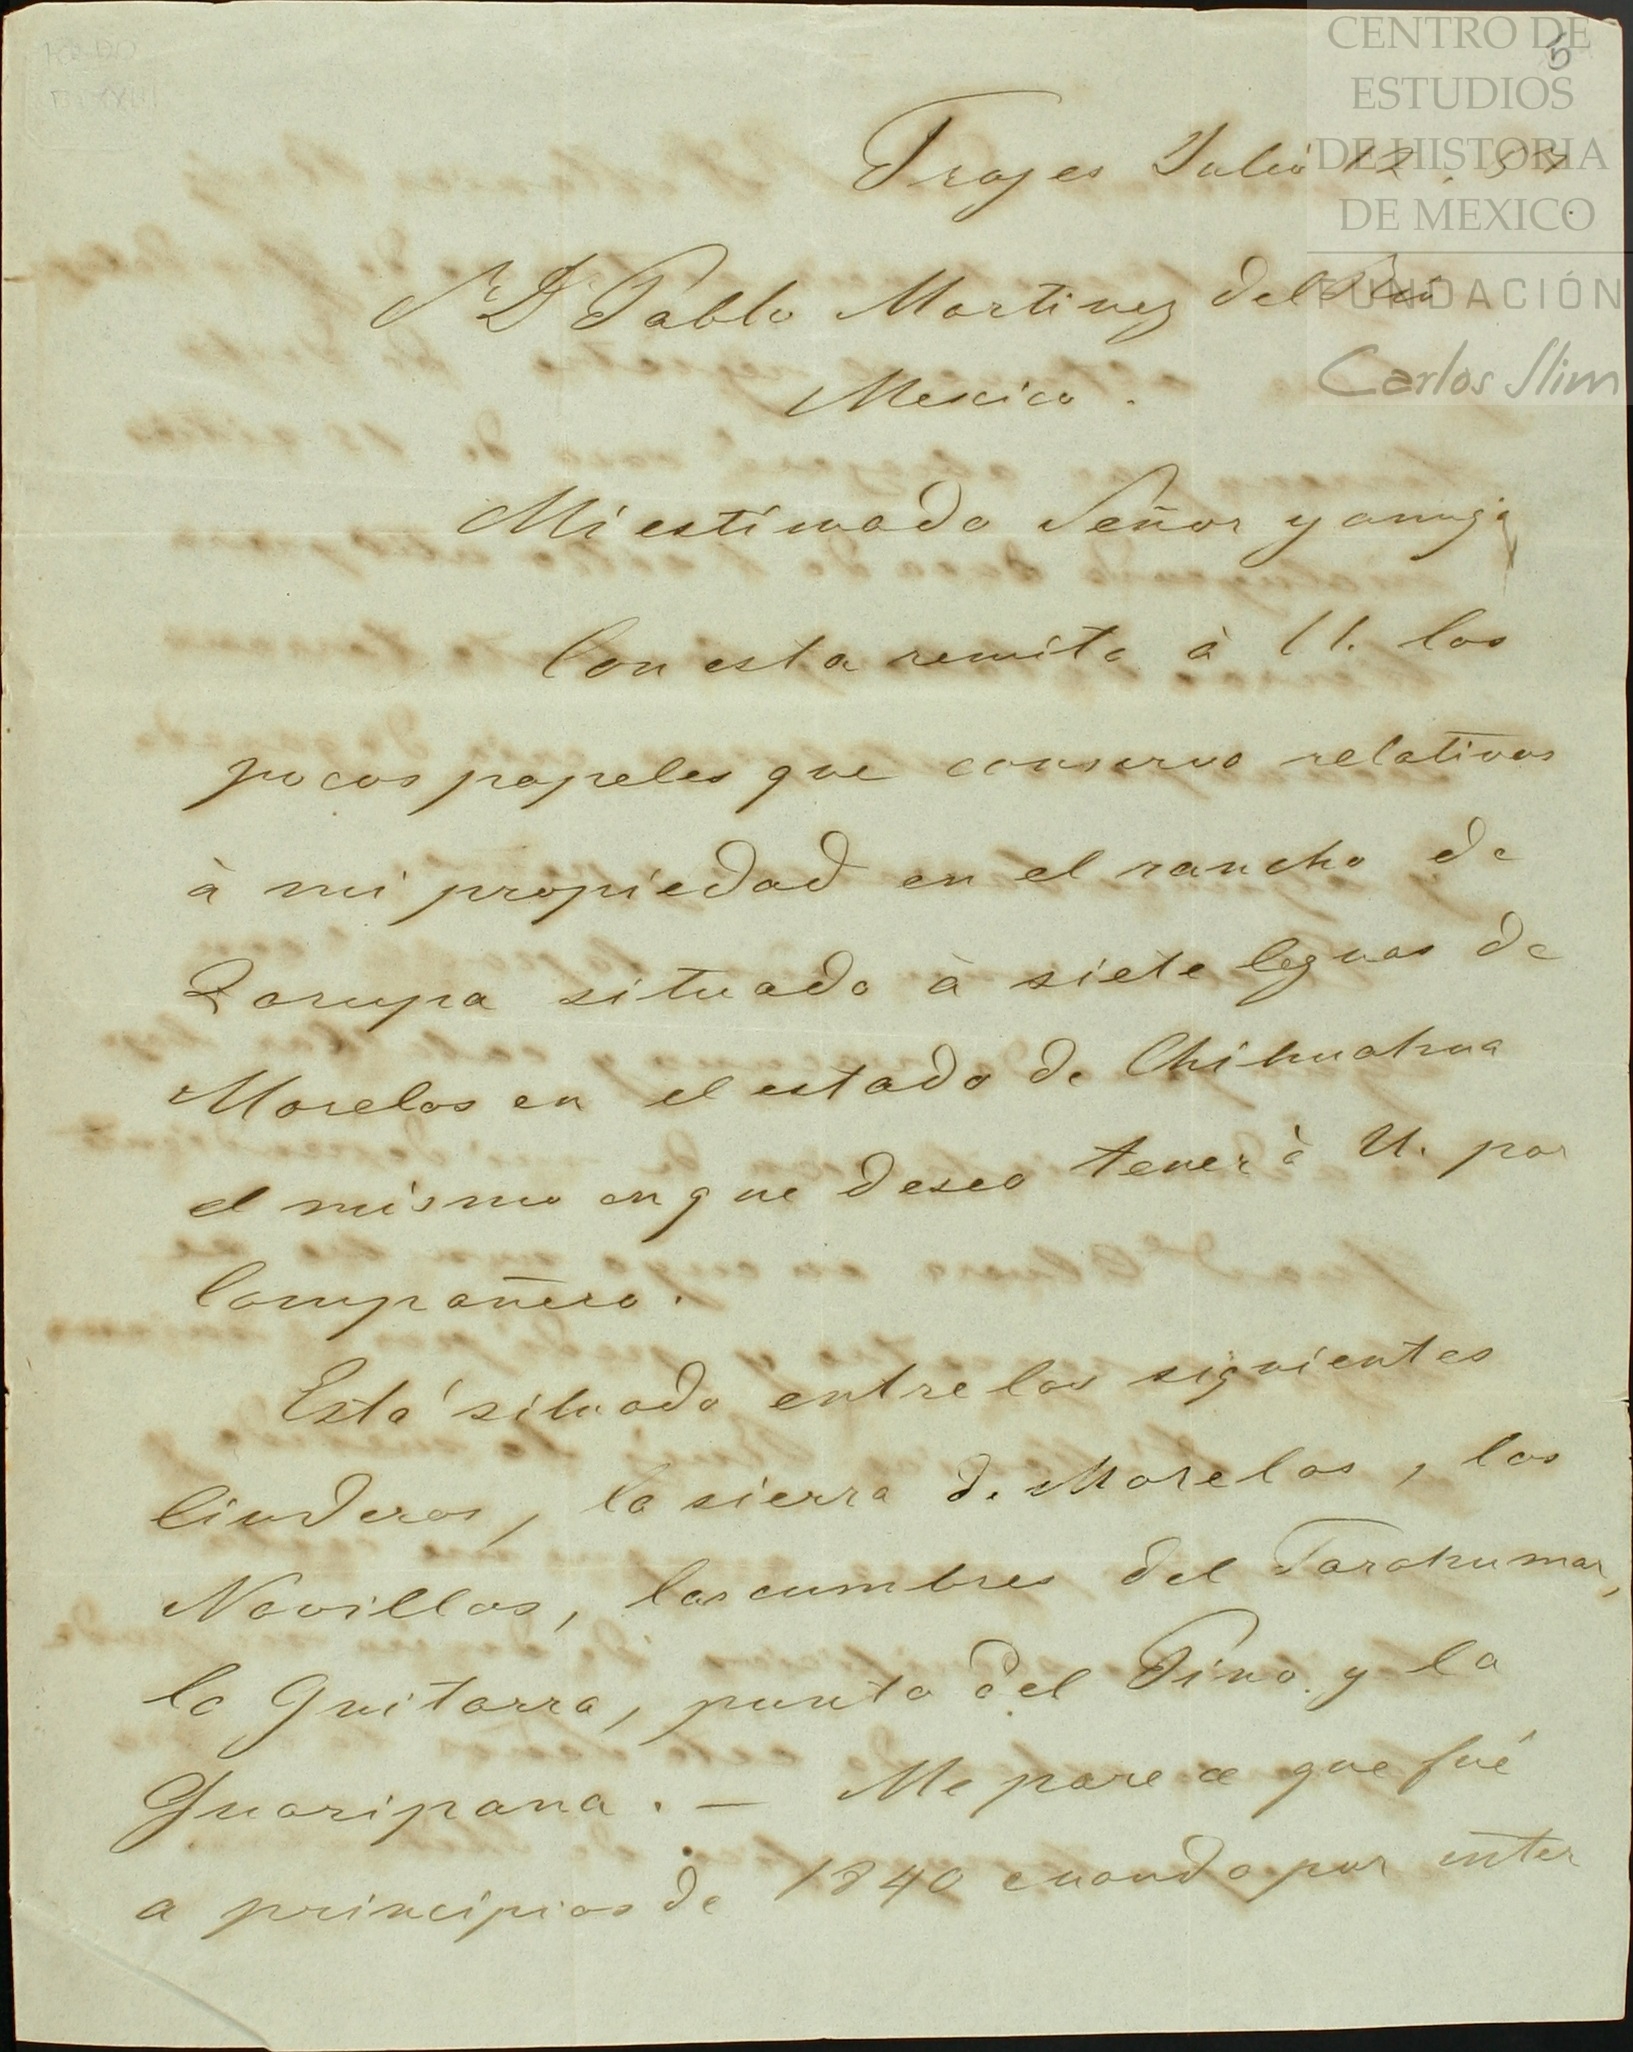 5
CENTRO DE
ESTUDIOS
DE HISTORIA
DE MEXICO
FUNDACIÓN
Carlos Slim
Trojes Julio 12
Sr Dn Pablo Martinez del Rio
Mexico.
Mi estimado Señor y amigo
Con esta remito à U. los
pocos papeles que conservo relativos
à mi propiedad en el rancho de
situado à siete leguas de
Morelos en el estado de Chihuahua
el mismo en que deseo tener à U. por
Compañero.
Está situado entre los siguientes
linderos, la sierra de Morelos, los
Novillos, las cumbres del Tarahumar,
la Guitarra, punta del Pino y la
Guaripana. — Me parece que fué
a principios de 1840 cuando por inter